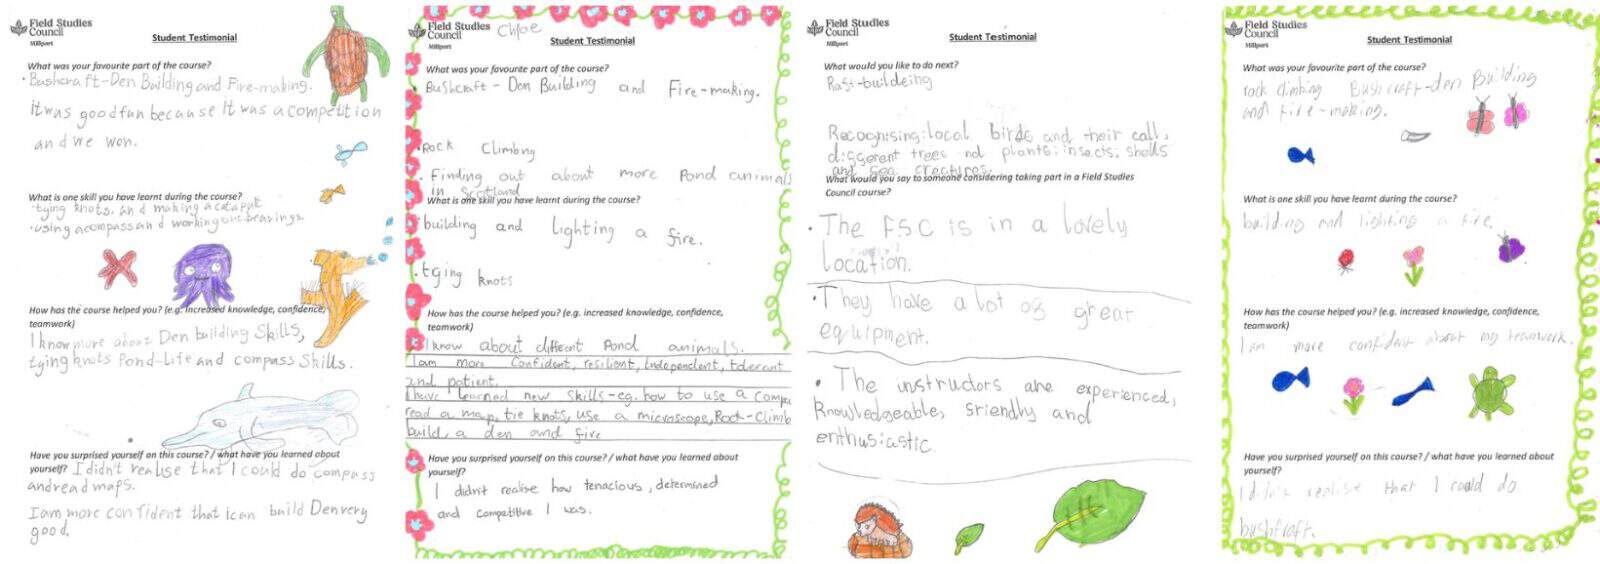 Field Studies
Council
Millport
Student Testimonial
What was your favourite part of the course?
• Bushcraft-Den Building and Fire-making.
It was good fun because It was a competition
and we won.
What is one skill you have learnt during the course?
-tying knots. and making a catapult
•using a compass and working out bearings.
How has the course helped you? (e.g. increased knowledge, confidence,
teamwork)
I know more about Den building Skills,
tying knots Pond-Life and compass Skills.
Have you surprised yourself on this course? / what have you learned about
yourself? I didn't realise that I could do compass
and read maps.
I am more confident that I can build Den very
good.
Field Studies
Council
Millport
Chloe
Student Testimonial
What was your favourite part of the course?
Bushcraft - Den Building and Fire-making.
•Rock Climbng
• Finding out about more Pond animals
in Scotland
What is one skill you have learnt during the course?
•building and lighting a fire.
•tying knots
How has the course helped you? (e.g. increased knowledge, confidence,
teamwork)
I know about different Pond animals.
I am more confident, resilient, Independent, tolerant
and patient.
I have learned new skills-eg. how to use a compa
read a map, tie knots, use a microscope, Rock-Climb
build, a den and fire
Have you surprised yourself on this course? / what have you learned about
yourself?
I didn't realise how tenacious, determined
and competitive I was.
Field Studies
Council
Millport
Student Testimonial
What would you like to do next?
Raft-buildeing
Recognising: local birds and their call,
different trees nd plants: insects, shells
and sea creatures.
What would you say to someone considering taking part in a Field Studies
Council course?
• The FSC is in a lovely
location.
•They have a lot of great
equipment.
• The instructors are experienced,
knowledgeable, friendly and
enthusiastic
Field Studies
Council
Millport
Student Testimonial
What was your favourite part of the course?
rock climbing Bushcraft-den Building
and fire-making.
What is one skill you have learnt during the course?
building and lighting a fire.
How has the course helped you? (e.g. increased knowledge, confidence,
teamwork)
I am more confident about my teamwork.
Have you surprised yourself on this course? / what have you learned about
yourself?
I didn't realise that I could do
bushfraft.